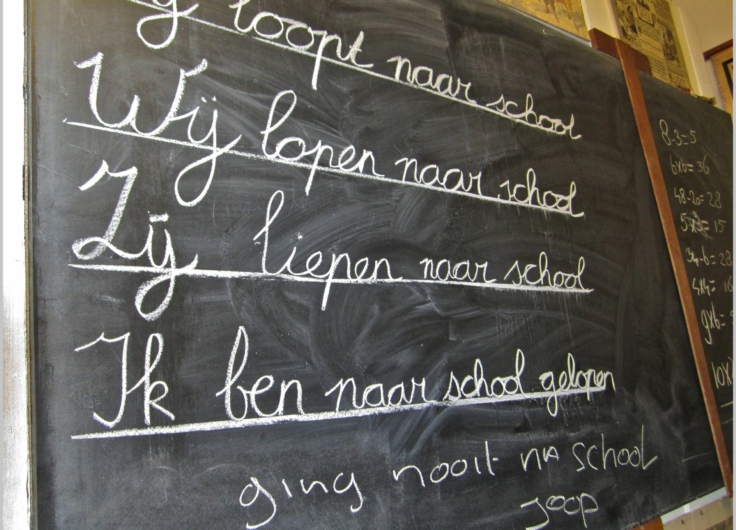 loopt naar school
Wij lopen naar school
Zij liepen naar school
Ik ben naar school gelopen
ging nooit na school
joop
8-3=5
6x6=36
48-20=28
=15
34-6=28
4x4=
9x6=
10x